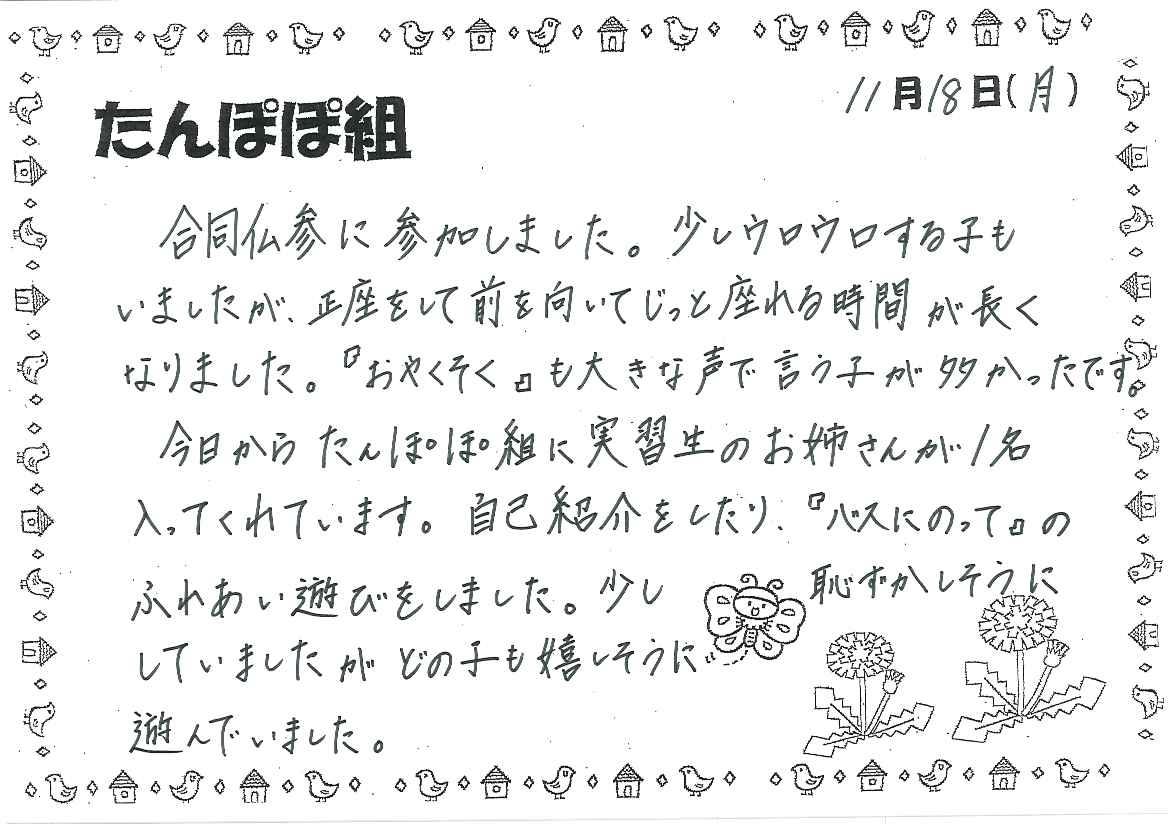 11月18日(月)
たんぽぽ組
合同仏参に参加しました。少しウロウロする子も
いましたが、正座をして前を向いてじっと座れる時間が長く
なりました。『おやくそく』も大きな声で言う子が多かったです。
今日からたんぽぽ組に実習生のお姉さんが1名
入ってくれています。自己紹介をしたり、『バスにのって』の
ふれあい遊びをしました。少し恥ずかしそうに
していましたがどの子も嬉しそうに
遊んでいました。